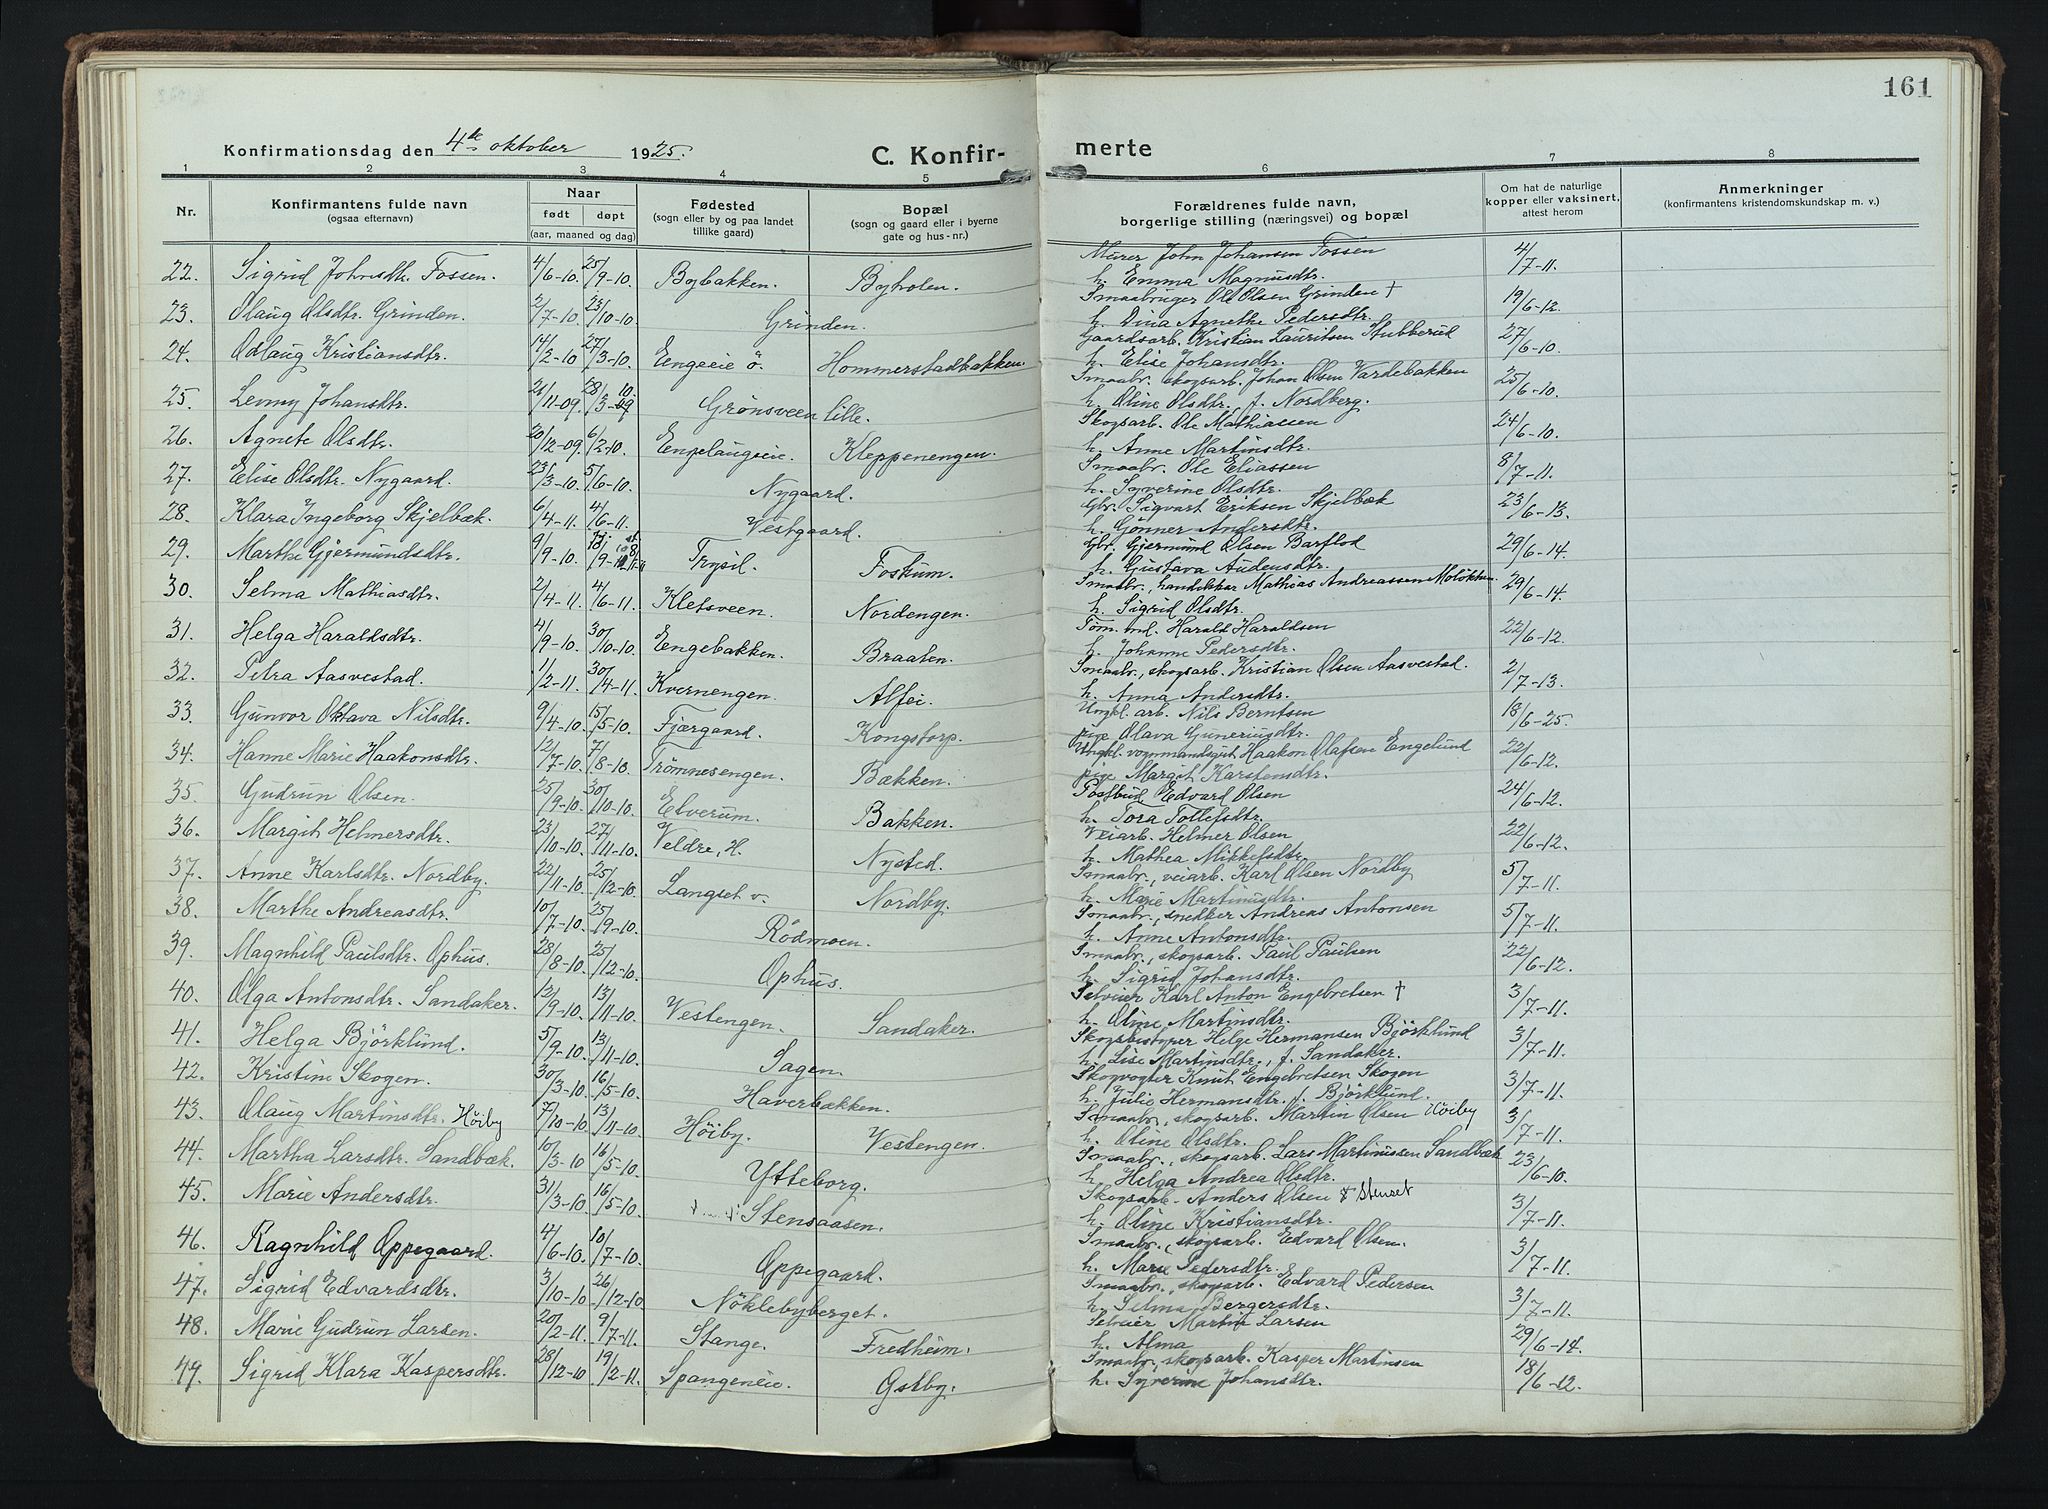 161
Konfirmationsdag den 4de oktober 1925.
C. Konfir-merte
1 2 3 4 5 6 7 8
Nr. Konfirmantens fulde navn (ogsaa efternavn) Naar født døpt (aar, maaned og dag) Fødested (sogn eller by og paa landet tillike gaard) Bopæl (sogn og gaard eller i byerne gate og hus-nr.) Forældrenes fulde navn, borgerlige stilling (næringsvei) og bopæl Om hat de naturlige kopper eller vaksinert, attest herom Anmerkninger (konfirmantens kristendomskundskap m. v.)
22. Sigrid Johnsdtr. Fossen. 4/6-10. 25/9-10. Bybakken. Byholen. Murer John Johansen Fossen 4/7-11.
h. Emma Magnusdtr.
23. Olaug Olsdtr. Grinden. 2/7-10. 23/10-10. Grinden. Smaabruger Ole Olsen Grinden † 19/6-12.
h. Dina Agnethe Pedersdtr.
24. Odlaug Kristiansdtr. 14/2-10. 27/3-10. Engeeie ö. Hommerstadbakken. Gaardsarb. Kristian Lauritsen Stubberud 27/6-10.
h. Elise Johansdtr.
25. Lenny Johansdtr. 21/11-09. 28/3-10. Grönsveen lille. Smaabr. skogsarb. Johan Olsen Vardebakken 25/6-10.
h. Oline Olsdtr. f. Nordberg.
26. Agnete Olsdtr. 20/12-09. 6/2-10. Engelaugeeie. Kleppenengen. Skogsarb. Ole Mathiassen 24/6-10.
h. Anne Martinsdtr.
27. Elise Olsdtr. Nygaard. 23/3-10. 5/6-10. Nygaard. Smaabr. Ole Eliassen 8/7-11.
h. Syverine Olsdtr.
28. Klara Ingeborg Skjelbæk. 6/4-11. 4/6-11. Vestgaard. Gbr. Sigvart Eriksen Skjelbæk 23/6-13.
h. Gönner Andersdtr.
29. Marthe Gjermundsdtr. 9/9-10. Trysil. Foskum. Gbr. Gjermund Olsen Barflod 29/6-14.
h. Gustava Audensdtr.
30. Selma Mathiasdtr. 2/4-11. 4/6-11. Kletsveen. Nordengen. Smaabr., handelskar Mathias Andreassen Moløkken 29/6-14.
h. Sigrid Olsdtr.
31. Helga Haraldsdtr. 4/9-10. 30/10-10. Engebakken. Braaten. Töm. md. Harald Haraldsen 22/6-12.
h. Johanne Pedersdtr.
32. Petra Aasvestad. 1/2-11. 30/4-11. Kvernengen. Alfei. Smaabr., skogsarb. Kristian Olsen Aasvestad. 2/7-13.
h. Anna Andersdtr.
33. Gunvor Oktava Nilsdtr. 9/4-10. 15/5-10. Fjærgaard. Kongstorp. Ungkl. arb. Nils Berntsen 18/6-25.
pige Olava Gunerinsdtr.
34. Hanne Marie Haakonsdtr. 12/7-10. 7/8-10. Trömnesengen. Bækken. Ungkl. vognmandsgut Haakon Olafsen Engelund 22/6-12.
pige Margit Karstensdtr.
35. Gudrun Olsen. 25/9-10. 30/10-10. Elverum. Bakken. Postbud Edvard Olsen 24/6-12.
h. Tora Tollefsdtr.
36. Margit Helmersdtr. 23/10-10. 27/11-10. Veldre, H. Nysted. Veiarb. Helmer Olsen 22/6-12.
h. Mathea Mikkelsdtr.
37. Anne Karlsdtr. Nordby. 22/11-10. 25/12-10. Langset v. Nordby. Smaabr., veiarb. Karl Olsen Nordby 5/7-11.
h. Marie Martinusdtr.
38. Marthe Andreasdtr. 10/7-10. 25/9-10. Rödmoen. Smaabr., snedker Andreas Antonsen 5/7-11.
h. Anne Antonsdtr.
39. Magnhild Paulsdtr. Ophus. 28/8-10. 25/12-10. Ophus. Smaabr., skogsarb. Paul Paulsen 22/6-12.
h. Sigrid Johansdtr.
40. Olga Antonsdtr. Sandaker. 12/9-10. 13/11-10. Vestengen. Sandaker. Selveier Karl Anton Engebretsen † 3/7-11.
h. Oline Martinsdtr.
41. Helga Björklund. 5/9-10. 13/11-10. Sagen. Skogsbistyrer Helge Hermansen Björklund 3/7-11.
h. Lise Martinsdtr., f. Sandaker.
42. Kristine Skogen. 30/3-10. 16/5-10. Haverbækken. Skogvogter Knut Engebretsen Skogen 3/7-11.
h. Julie Hermansdtr. f. Björklund.
43. Olaug Martinsdtr. Höiby 7/10-10 13/11-10. Höiby. Vestengen. Smaabr., skogsarb. Martin Olsen Höiby 3/7-11.
h. Oline Olsdtr.
44. Martha Larsdtr. Sandbæk. 10/3-10 16/5-10. Ytteborg. Smaabr., skogsarb. Lars Martinussen Sandbæk 23/6-10.
h. Helga Andrea Olsdtr.
45. Marie Andersdtr. 31/3-10. 16/5-10. Stensaasen. Skogsarb. Anders Olsen Stenset 3/7-11.
h. Oline Kristiansdtr.
46. Ragnhild Oppegaard. 4/6-10. 10/7-10. Oppegaard. Smaabr., skogsarb. Edvard Olsen. 3/7-11.
h. Marie Pedersdtr.
47. Sigrid Edvardsdtr. 3/10-10 26/12-10. Nöklebyberget. Smaabr., skogsarb. Edvard Pedersen 3/7-11.
h. Selma Bergersdtr.
48. Marie Gudrun Larsen. 20/2-11. 9/7-11. Stange. Fredheim. Selveier Martin Larsen 29/6-14.
h. Alma
49. Sigrid Klara Kaspersdtr. 28/12-10 19/2-11. Spangeneie. Østby. Smaabr., skogsarb. Kasper Martinsen 18/6-12.
h. Syverine Johansdtr.